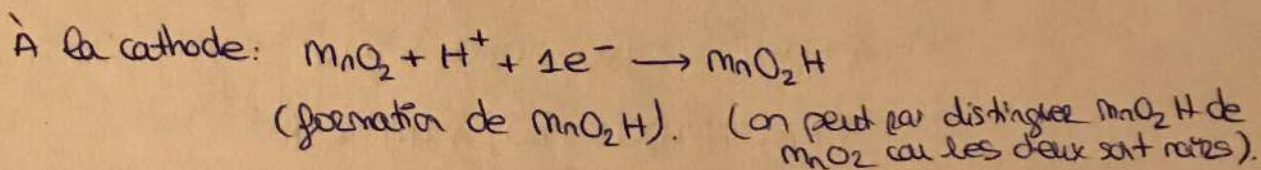 À la cathode: MnO₂ + H⁺ + 1e⁻ → MnO₂H
(formation de MnO₂H). (on peut pas distinguer MnO₂H de
MnO₂ car les deux sont noires).